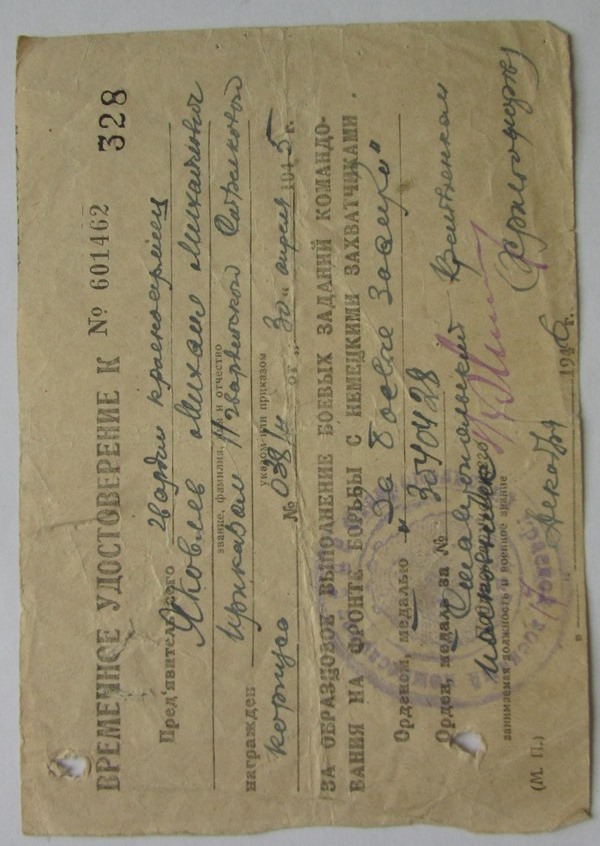 ВРЕМЕННОЕ УДОСТОВЕРЕНИЕ К № 601462
328
Пред'явительного гвардии красноармеец
Яковлев Михаил Михайлович
звание, фамилия, имя и отчество
награжден Приказом 11 Гвардейской Стрелковой
указом или приказом
корпуса № 038/н от „30„ апреля 1945 г.
ЗА ОБРАЗЦОВОЕ ВЫПОЛНЕНИЕ БОЕВЫХ ЗАДАНИЙ КОМАНДО-
ВАНИЯ НА ФРОНТЕ БОРЬБЫ С НЕМЕЦКИМИ ЗАХВАТЧИКАМИ.
Орденом, медалью „За боевые заслуги"
Орден, медаль за № 3540428
военный
занимаемая должность и военное звание
(М. П.) „ декабря 1946 г.